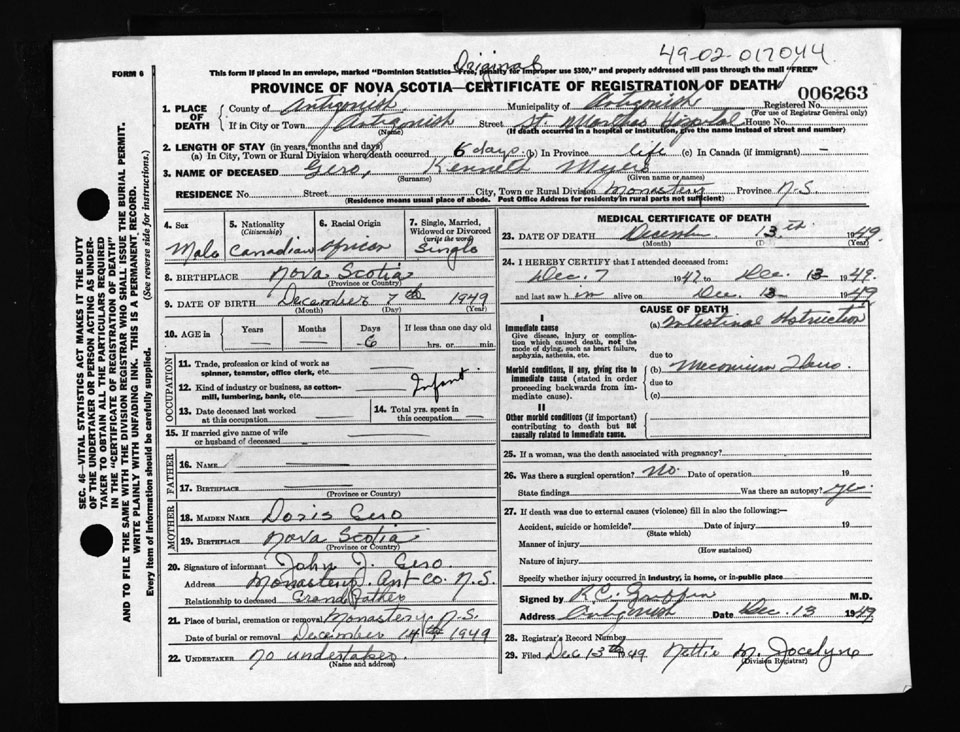 49-02-017044
Original
FORM 6
This form if placed in an envelope, marked "Dominion Statistics—Free, penalty for improper use $300," and properly addressed will pass through the mail "FREE"
PROVINCE OF NOVA SCOTIA—CERTIFICATE OF REGISTRATION OF DEATH
006263
1. PLACE OF DEATH { County of Antigonish Municipality of Antigonish Registered No.
(For use of Registrar General only)
If in City or Town Antigonish Street St Marthas Hospital House No.
(Name) (If death occurred in a hospital or institution, give the name instead of street and number)
2. LENGTH OF STAY (in years, months and days)
(a) In City, Town or Rural Division where death occurred 6 days (b) In Province life (c) In Canada (if immigrant) —
3. NAME OF DECEASED Gero, Kenneth Myers
(Surname) (Given name or names)
RESIDENCE No. Street City, Town or Rural Division Monastery Province N.S.
(Residence means usual place of abode. Post Office Address for residents in rural parts not sufficient)
SEC. 46—VITAL STATISTICS ACT MAKES IT THE DUTY
OF THE UNDERTAKER OR PERSON ACTING AS UNDER-
TAKER TO OBTAIN ALL THE PARTICULARS REQUIRED
IN THE "CERTIFICATE OF REGISTRATION OF DEATH"
AND TO FILE THE SAME WITH THE DIVISION REGISTRAR WHO SHALL ISSUE THE BURIAL PERMIT.
WRITE PLAINLY WITH UNFADING INK. THIS IS A PERMANENT RECORD.
Every item of information should be carefully supplied. (See reverse side for instructions.)
4. Sex
Male
5. Nationality
(Citizenship)
Canadian
6. Racial Origin
African
7. Single, Married,
Widowed or Divorced
(write the word)
Single
8. BIRTHPLACE Nova Scotia
(Province or Country)
9. DATE OF BIRTH December 7th 1949
(Month) (Day) (Year)
10. AGE in { Years Months Days If less than one day old
— — 6 hrs. or min.
OCCUPATION
11. Trade, profession or kind of work as
spinner, teamster, office clerk, etc.
12. Kind of industry or business, as cotton-
mill, lumbering, bank, etc. Infant
13. Date deceased last worked
at this occupation
14. Total yrs. spent in
this occupation
15. If married give name of wife
or husband of deceased
FATHER
16. Name
17. Birthplace
(Province or Country)
MOTHER
18. MAIDEN NAME Doris Gero
19. BIRTHPLACE Nova Scotia
(Province or Country)
20. Signature of informant John J. Gero.
Address Monastery. Ant co. N.S.
Relationship to deceased Grand Father
21. Place of burial, cremation or removal Monastery N.S.
Date of burial or removal December 14th 1949
22. UNDERTAKER No undertaker.
(Name and address)
MEDICAL CERTIFICATE OF DEATH
23. DATE OF DEATH December 13th 1949
(Month) (D (Year)
24. I HEREBY CERTIFY that I attended deceased from:
Dec. 7 1949 to Dec. 13 1949.
and last saw him alive on Dec. 13 1949
CAUSE OF DEATH
I
Immediate cause
Give disease, injury or complica-
tion which caused death, not the
mode of dying, such as heart failure,
asphyxia, asthenia, etc.
(a) Intestinal Obstruction
due to
Morbid conditions, if any, giving rise to
immediate cause (stated in order
proceeding backwards from im-
mediate cause).
(b) Meconium Ileus.
due to
(c)
II
Other morbid conditions (if important)
contributing to death but not
causally related to immediate cause.
25. If a woman, was the death associated with pregnancy?
26. Was there a surgical operation? No. Date of operation 19
State findings Was there an autopsy?
27. If death was due to external causes (violence) fill in also the following:—
Accident, suicide or homicide? Date of injury 19
(State which)
Manner of injury
(How sustained)
Nature of injury
Specify whether injury occurred in industry, in home, or in public place
Signed by M.D.
Address Antigonish Date Dec. 13 1949
28. Registrar's Record Number
29. Filed Dec 13th 1949 Nettie M. Jocelyne
(Division Registrar)